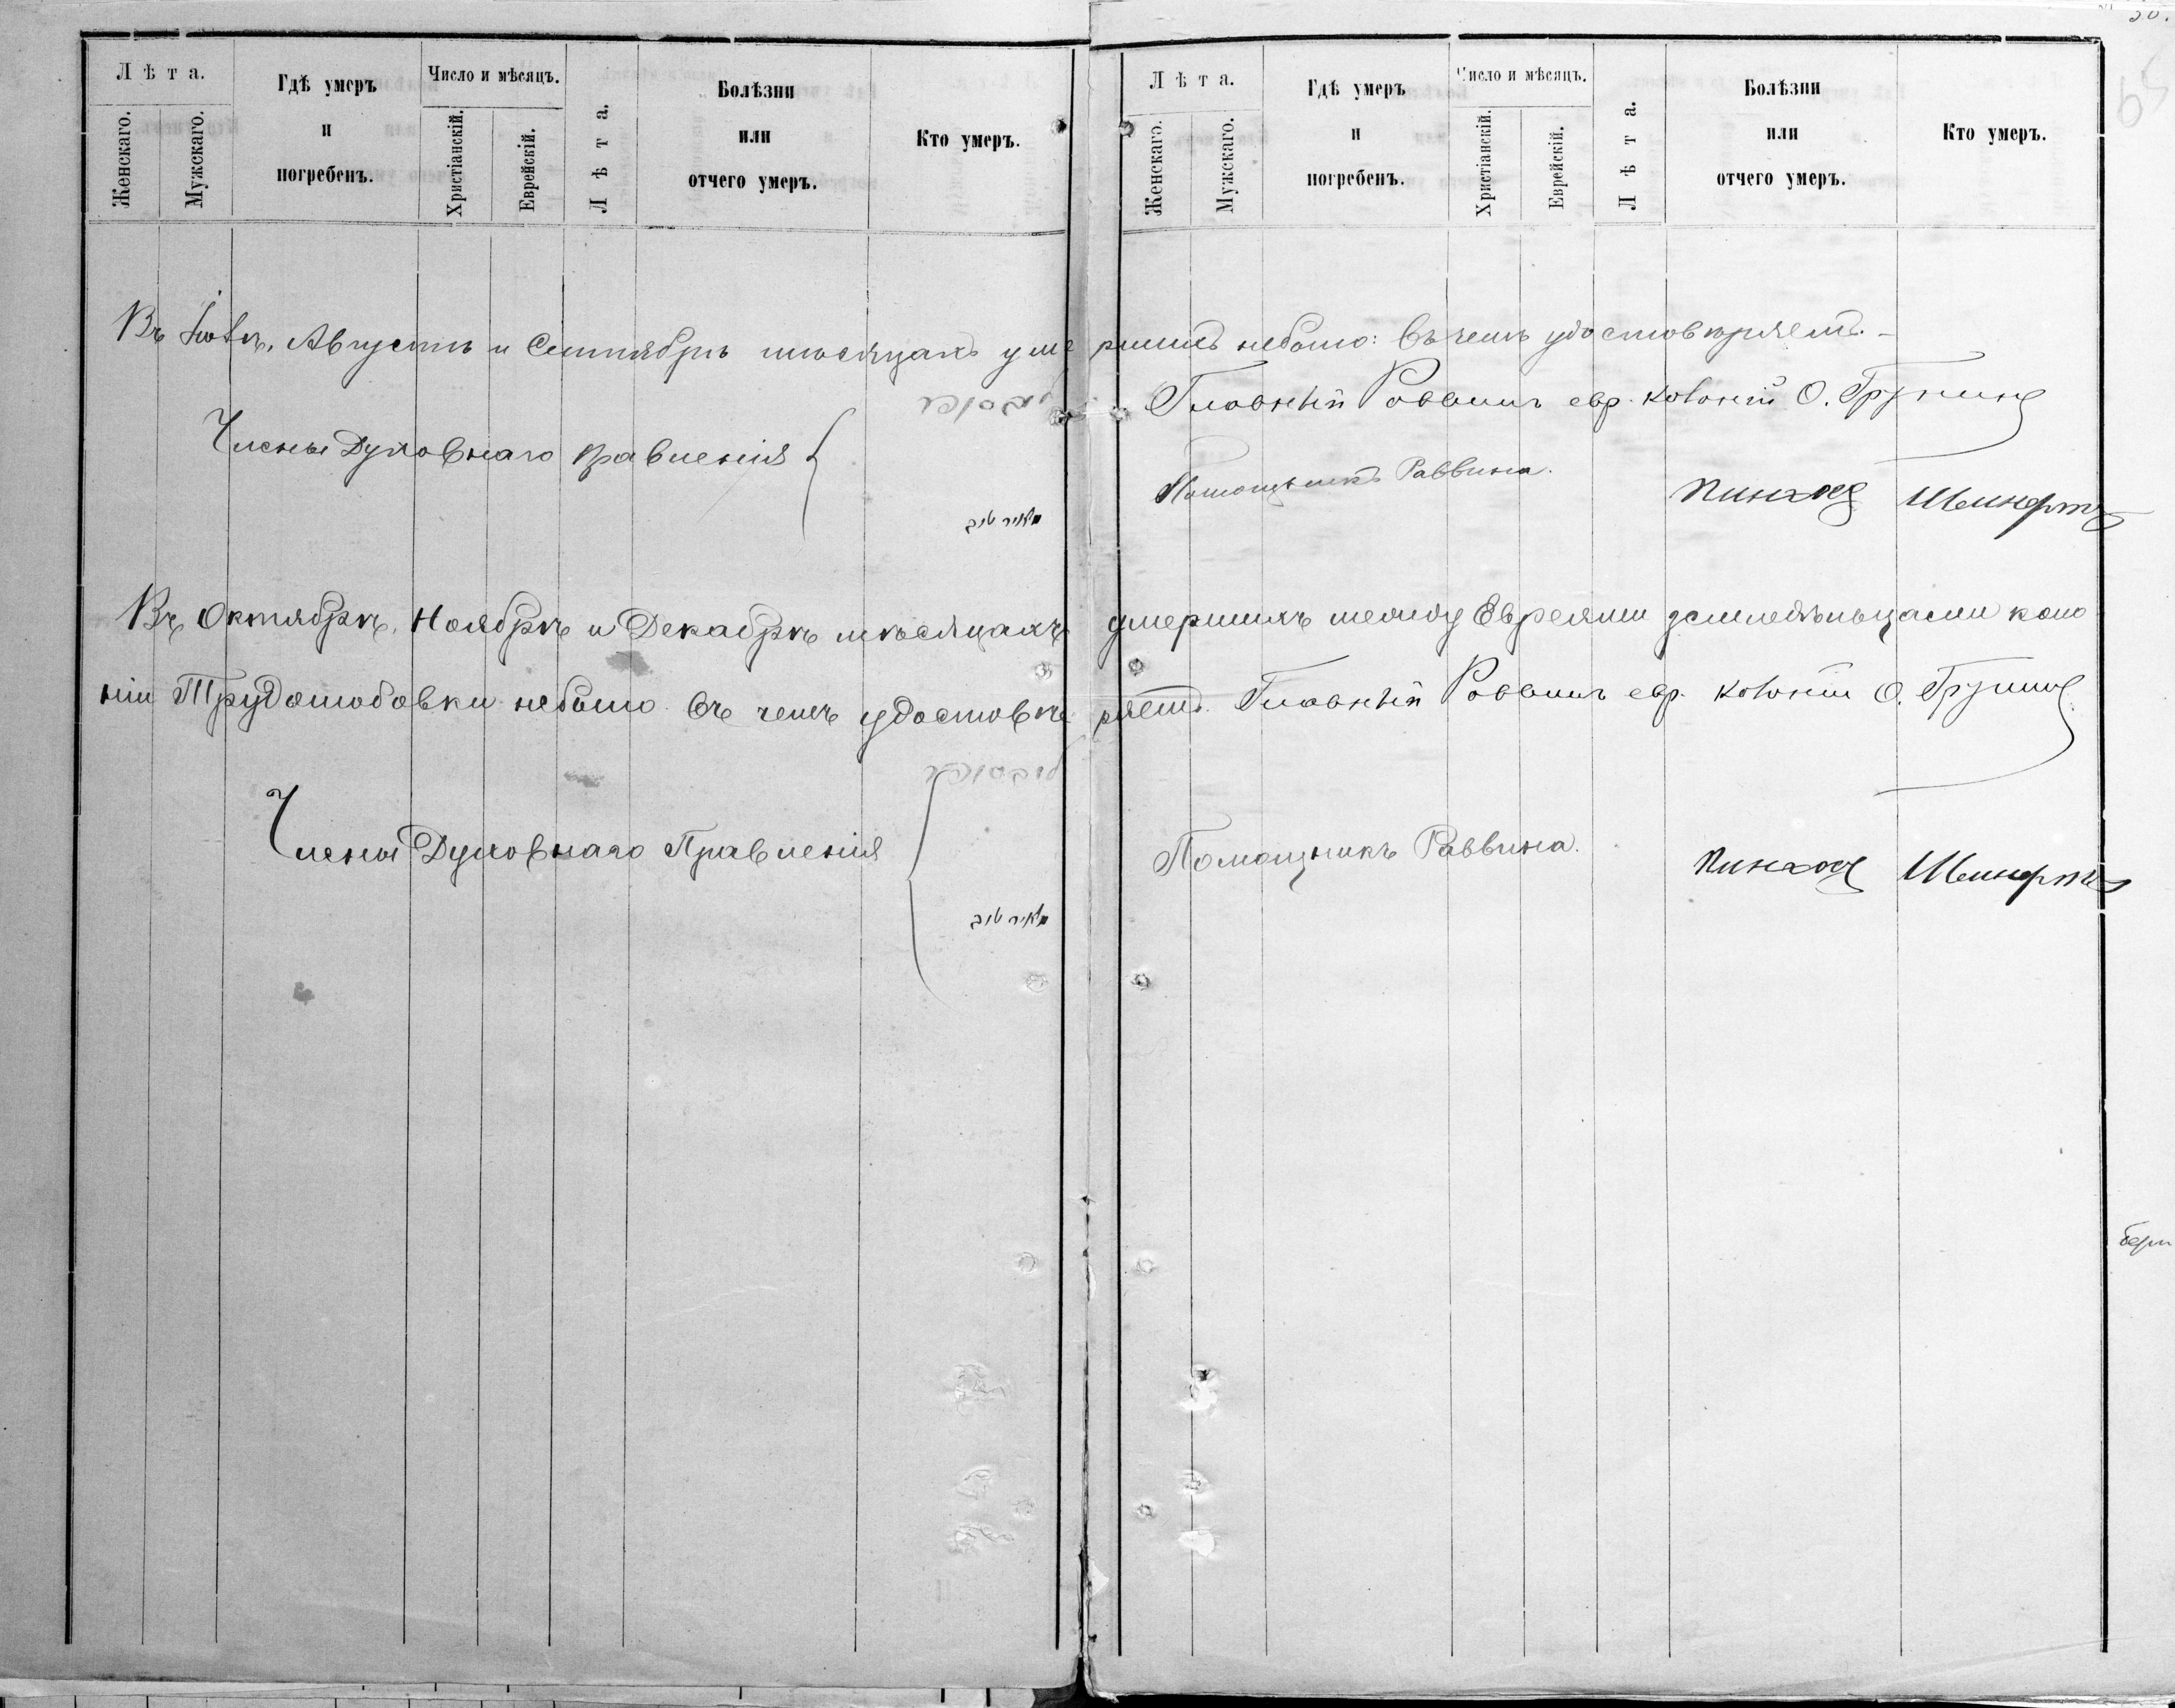 Лѣта.
Женскаго.
Мужскаго.
Гдѣ умеръ
и
погребенъ.
Число и мѣсяцъ.
Христіанскій.
Еврейскій.
Лѣта.
Болѣзни
или
отчего умеръ.
Кто умеръ.
Лѣта.
Женскаго.
Мужскаго.
Гдѣ умеръ
и
погребенъ.
Число и мѣсяцъ.
Христіанскій.
Еврейскій.
Лѣта.
Болѣзни
или
отчего умеръ.
Кто умеръ.
Въ Іюлѣ, Августѣ и Сентябрѣ мѣсяцахъ умершихъ небыло: Въ чемъ удостовѣряемъ. –
Главный Раввинъ евр. колоній О.
Члены Духовнаго Правленія
Помощникъ Раввина. Пинхос
Въ Октябрѣ, Ноябрѣ и Декабрѣ мѣсяцахъ умершихъ между Евреями земледѣльцами коло
ніи Трудолюбовки небыло. Въ чемъ удостовѣряемъ. Главный Раввинъ евр. колоній О.
Члены Духовнаго Правленія
Помощникъ Раввина. Пинхос